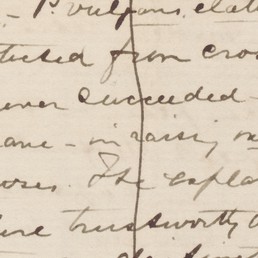 - P. vulgaris. elat
tused from cros
ever succeeded -
ane - in raising on
oses. The expla
ere trustworthy